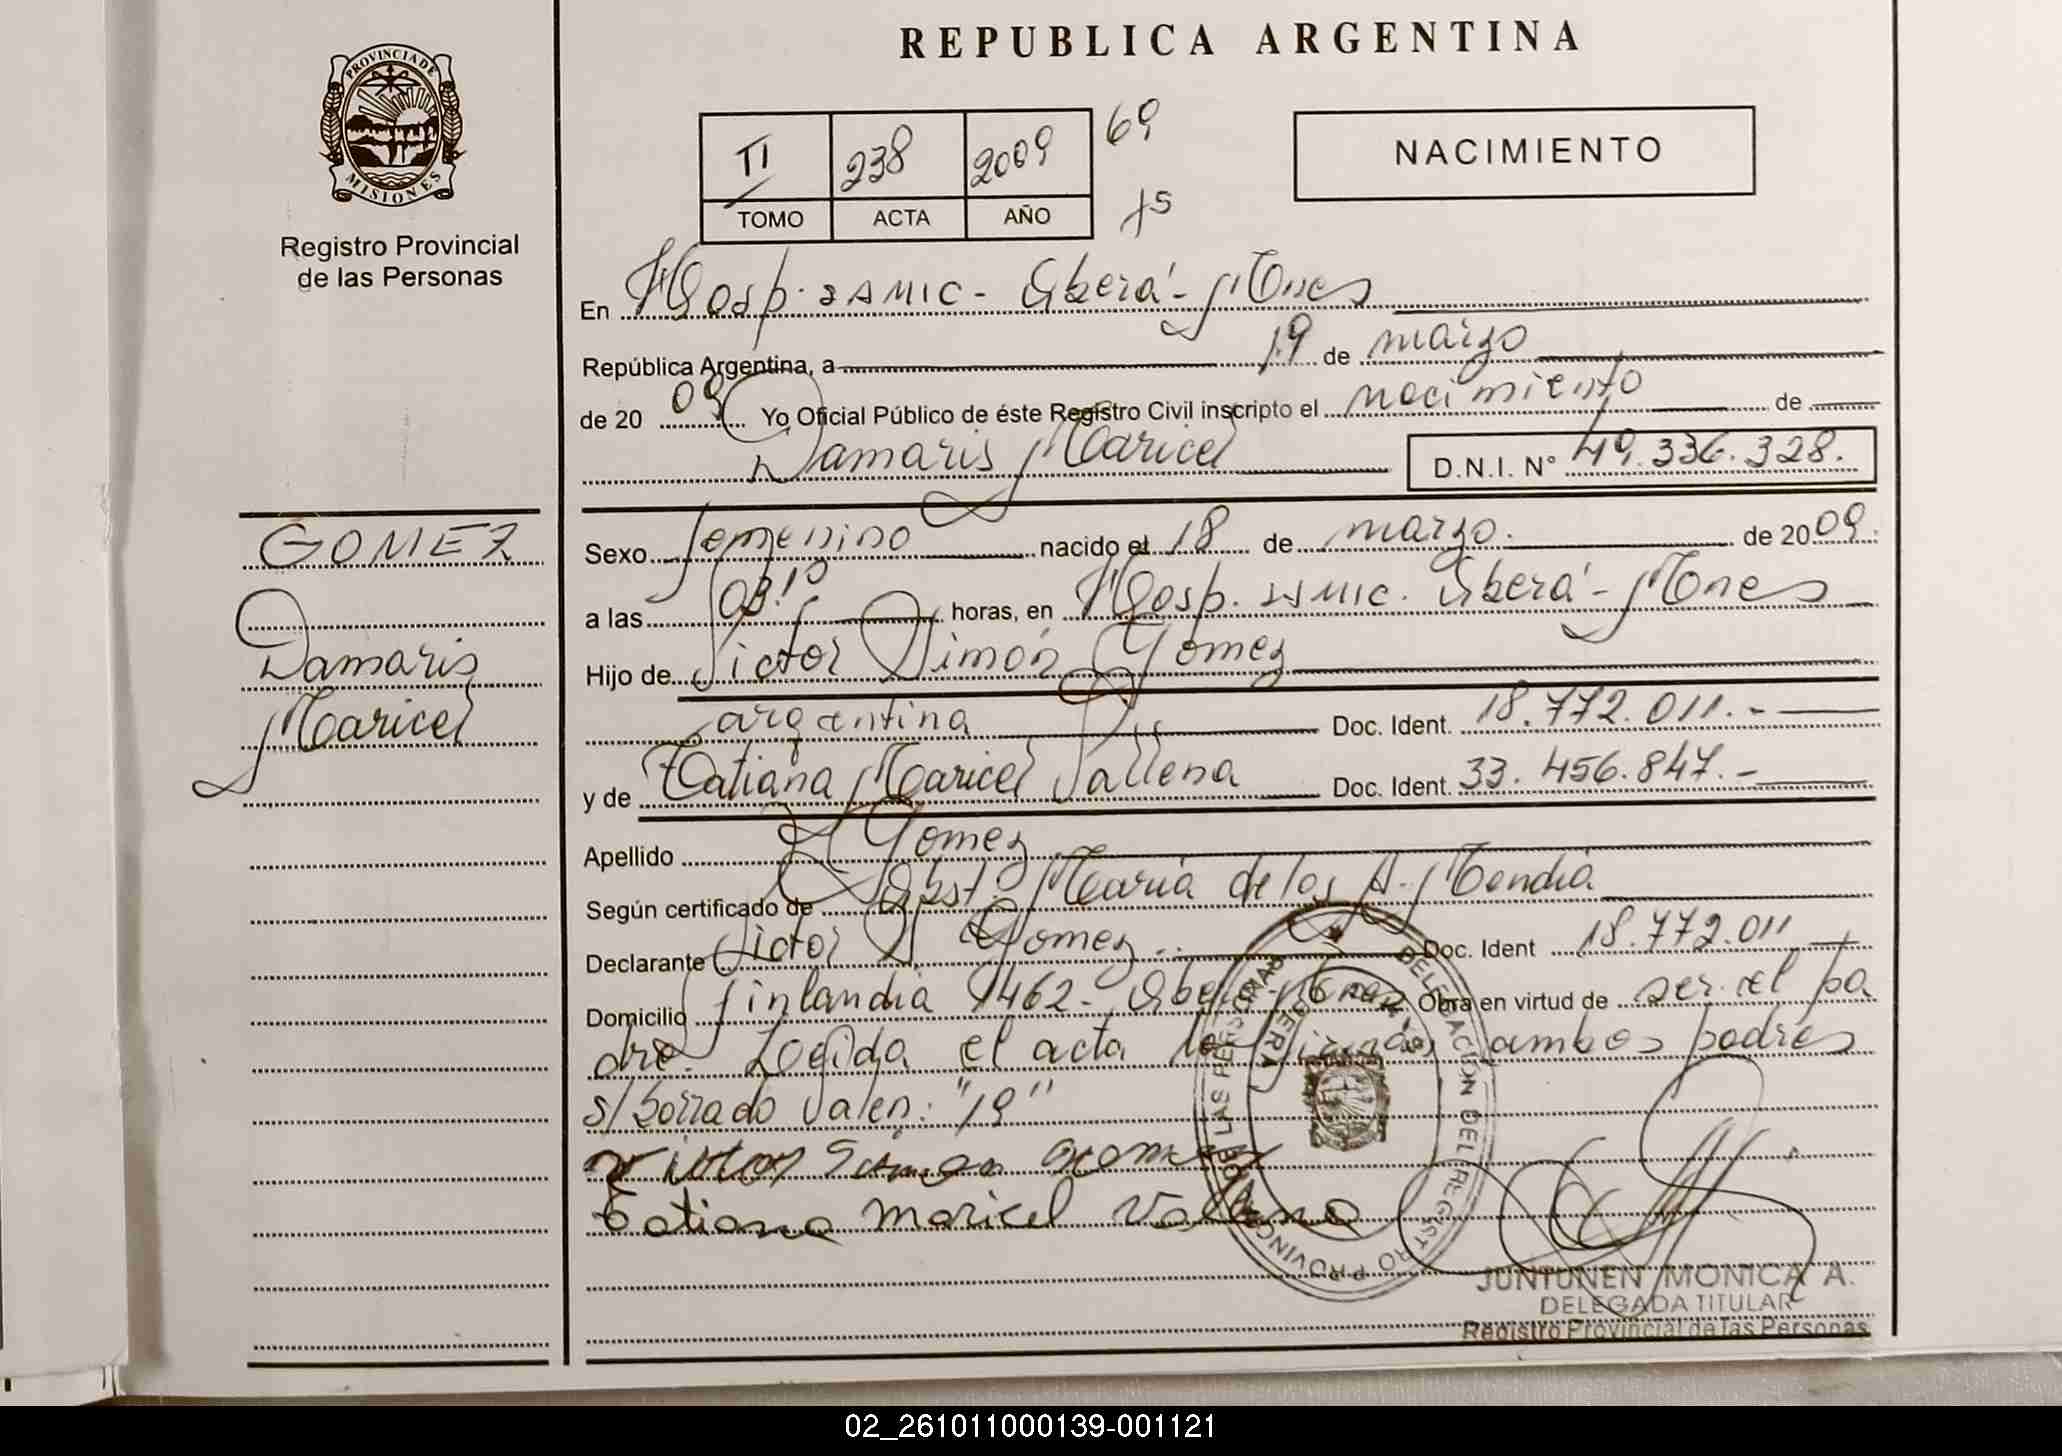 REPUBLICA ARGENTINA
PROVINCIA DE
MISIONES
Registro Provincial
de las Personas
TI 238 2009 69
TOMO ACTA AÑO
NACIMIENTO
En Hosp. SAMIC - Oberá - Mnes
República Argentina, a 19 de marzo
de 20 09 Yo Oficial Público de éste Registro Civil inscripto el nacimiento de
Damaris Maricel D.N.I. N° 49.336.328.
GOMEZ
Damaris
Maricel
Sexo femenino nacido el 18 de marzo. de 20 09.
a las horas, en Hosp. SAMIC. Oberá - Mnes
Hijo de Victor Simón Gomez
argentina Doc. Ident. 18.772.011.-
y de Tatiana Maricel Vallena Doc. Ident. 33.456.847.-
Apellido Gomez
Según certificado de Obst. María de los A. Mendia
Declarante Victor S. Gomez Doc. Ident 18.772.011
Domicilio finlandia 1462 - Oberá - Mnes Obra en virtud de ser el pa
dre. Leída el acta la firman ambos padres
s/borrado valen: "19"
Victor Simon Gomez
Tatiana Maricel Vallena
DELEGACIÓN DEL REGISTRO PROVINCIAL DE LAS PERSONAS
OBERA
JUNTUNEN MONICA A.
DELEGADA TITULAR
Registro Provincial de las Personas
02_261011000139-001121